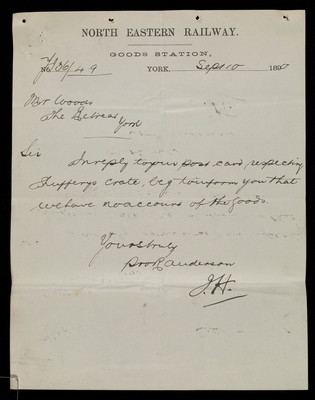 NORTH EASTERN RAILWAY.
GOODS STATION,
YORK, Sept 10 1890
Mr Woods
The Retreat
York
Sir
In reply to your post card respecting
crate, beg to inform you that
we have no account of the goods.
Yours truly
Anderson
J.H.